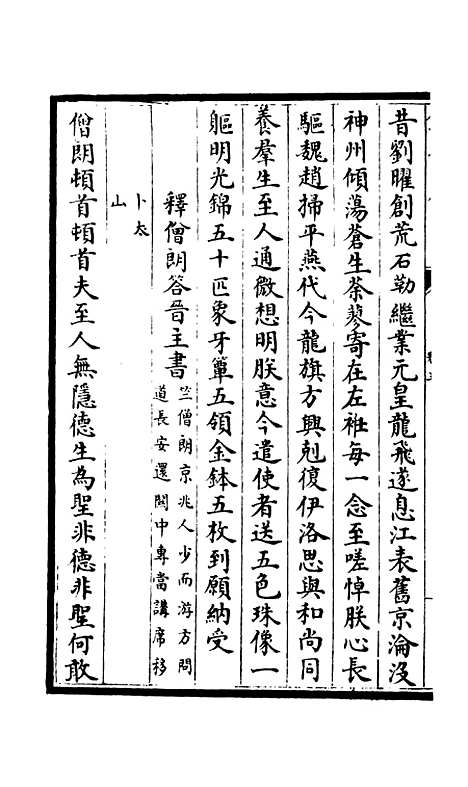 昔劉曜創荒石勒繼業元皇龍飛遂息江表舊京淪沒
神州傾蕩蒼生荼蓼寄在左袵每一念至嗟悼朕心長
驅魏趙掃平燕代今龍旗方興剋復伊洛思與和尚同
養羣生至人通微想明朕意今遣使者送五色珠像一
軀明光錦五十匹象牙簟五領金鉢五枚到願納受
釋僧朗答晉主書
竺僧朗京兆人少而游方問
道長安還關中專當講席移
卜太
山
僧朗頓首頓首夫至人無隱德生為聖非德非聖何敢